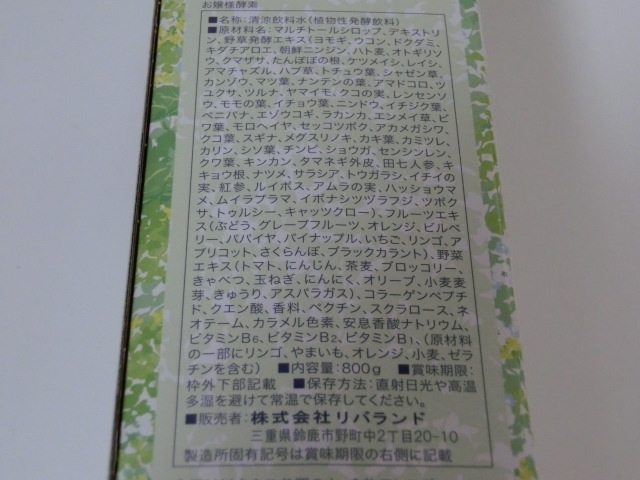 お嬢様酵素
■名称:清涼飲料水(植物性発酵飲料)
■原材料名:マルチトールシロップ、デキストリ
ン、野草発酵エキス(ヨモギ、ウコン、ドクダミ、
キダチアロエ、朝鮮ニンジン、ハト麦、オトギリソ
ウ、クマザサ、たんぽぽの根、ケツメイシ、レイシ、
アマチャヅル、ハブ草、トチュウ葉、シャゼン草、
カンゾウ、マツ葉、ナンテンの葉、アマドコロ、ツ
ユクサ、ツルナ、ヤマイモ、クコの実、レンセンソ
ウ、モモの葉、イチョウ葉、ニンドウ、イチジク葉、
ベニバナ、エゾウコギ、ラカンカ、エンメイ草、ビ
ワ葉、モロヘイヤ、セッコツボク、アカメガシワ、
クコ葉、スギナ、メグスリノキ、カキ葉、カミツレ、
カリン、シソ葉、チンピ、ショウガ、センシンレン、
クワ葉、キンカン、タマネギ外皮、田七人参、キ
キョウ根、ナツメ、サラシア、トウガラシ、イチイの
実、紅参、ルイボス、アムラの実、ハッショウマ
メ、ムイラプアマ、イボナシツヅラフジ、ツボク
サ、トゥルシー、キャッツクロー)、フルーツエキ
ス(ぶどう、グレープフルーツ、オレンジ、ビルベ
リー、パパイヤ、パイナップル、いちご、リンゴ、ア
プリコット、さくらんぼ、ブラックカラント)、野菜
エキス(トマト、にんじん、茶麦、ブロッコリー、
きゃべつ、玉ねぎ、にんにく、オリーブ、小麦麦
芽、きゅうり、アスパラガス)、コラーゲンペプチ
ド、クエン酸、香料、ペクチン、スクラロース、ネ
オテーム、カラメル色素、安息香酸ナトリウム、
ビタミンB6、ビタミンB2、ビタミンB1、(原材料
の一部にリンゴ、やまいも、オレンジ、小麦、ゼラ
チンを含む) ■内容量:800g ■賞味期限:
枠外下部記載 ■保存方法:直射日光や高温
多湿を避けて常温で保存してください。
■販売者:株式会社リバランド
三重県鈴鹿市野町中2丁目20-10
製造所固有記号は賞味期限の右側に記載